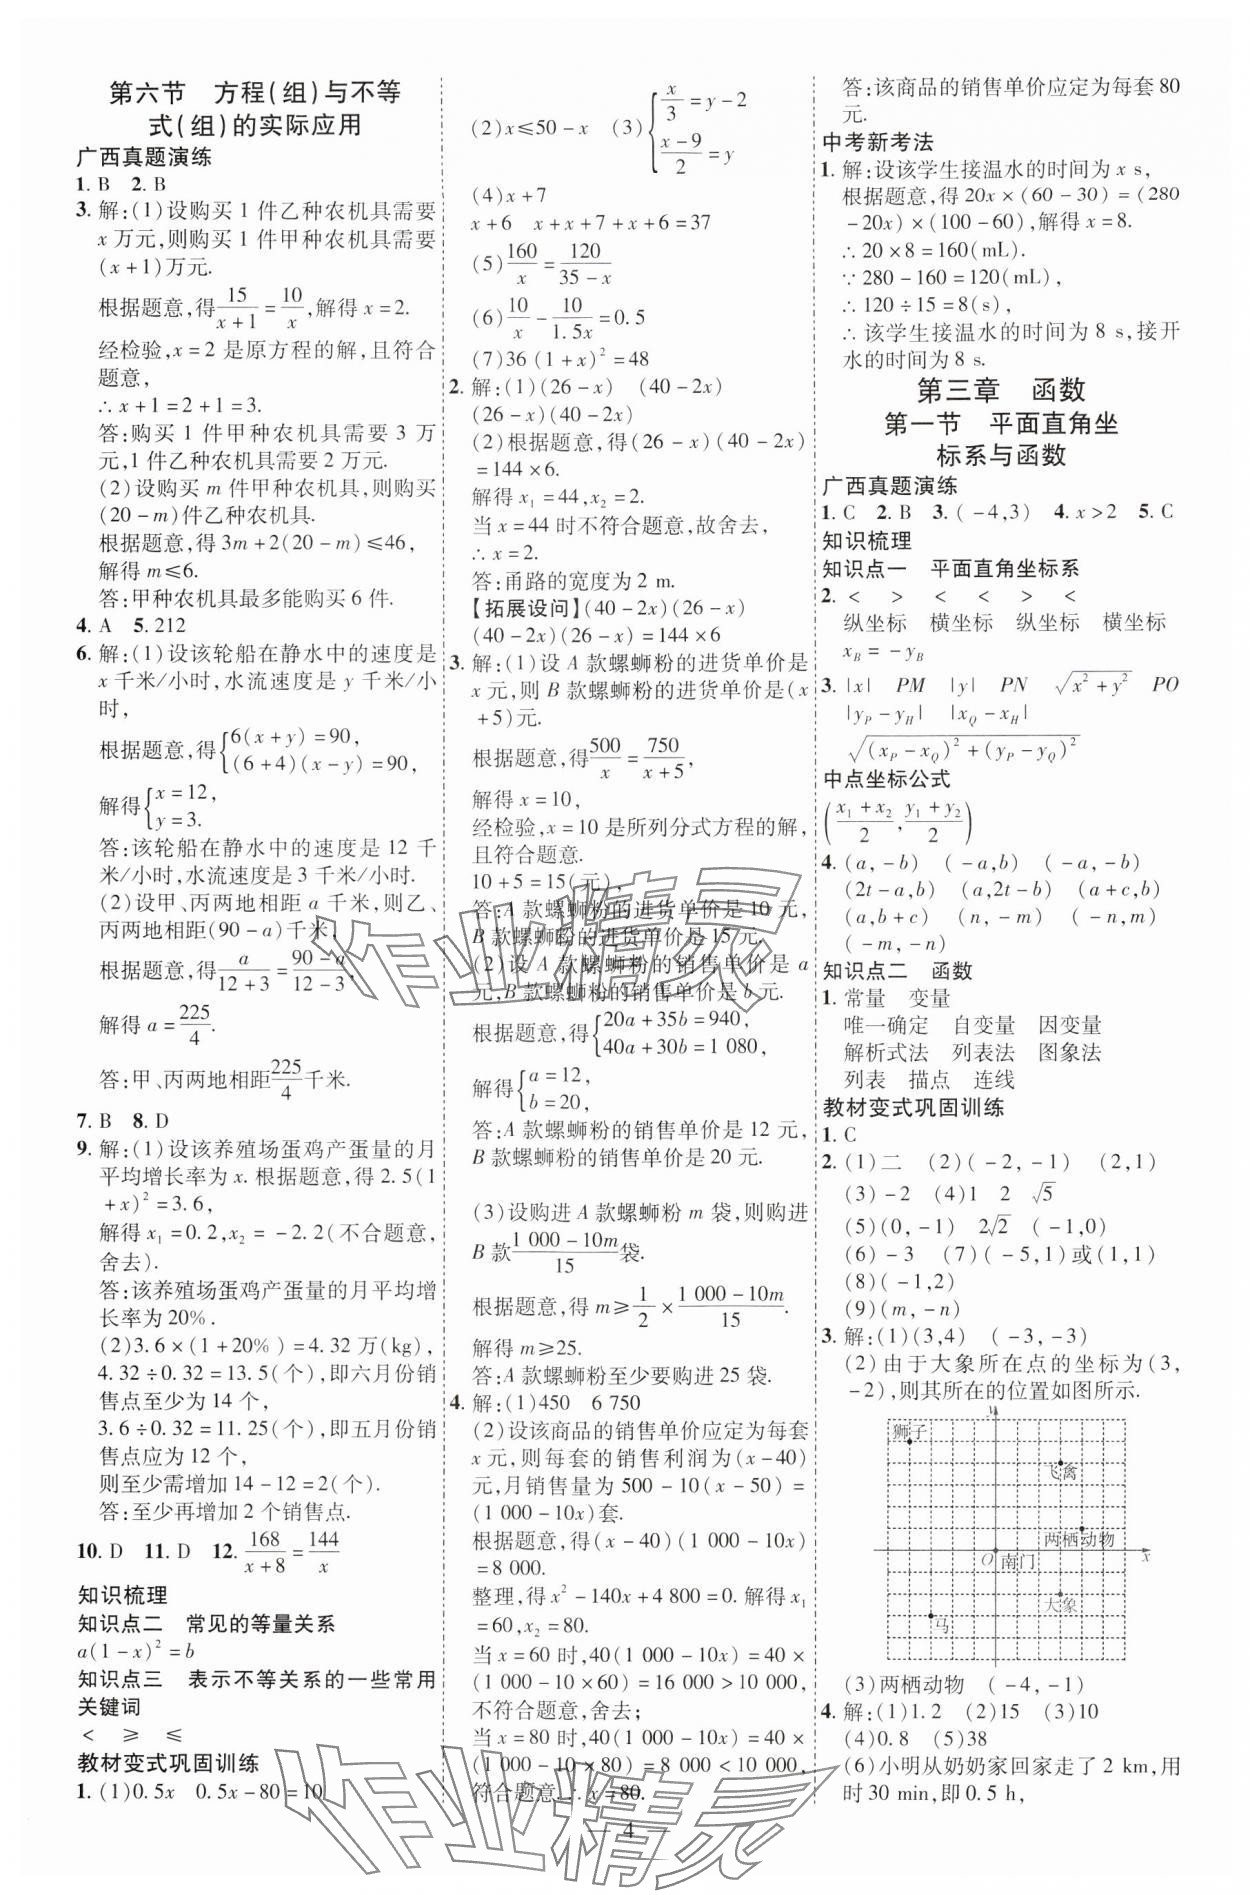 第六节　方程(组)与不等
式(组)的实际应用
广西真题演练
1. B　2. B
3. 解:(1)设购买 1 件乙种农机具需要
x 万元,则购买 1 件甲种农机具需要
(x+1)万元.
根据题意,得15/(x+1)=10/x,解得 x=2.
经检验,x=2 是原方程的解,且符合
题意,
∴x+1=2+1=3.
答:购买 1 件甲种农机具需要 3 万
元,1 件乙种农机具需要 2 万元.
(2)设购买 m 件甲种农机具,则购买
(20-m)件乙种农机具.
根据题意,得3m+2(20-m)≤46,
解得 m≤6.
答:甲种农机具最多能购买 6 件.
4. A　5. 212
6. 解:(1)设该轮船在静水中的速度是
x 千米/小时,水流速度是 y 千米/小
时,
根据题意,得{6(x+y)=90,
(6+4)(x-y)=90,
解得{x=12,
y=3.
答:该轮船在静水中的速度是 12 千
米/小时,水流速度是 3 千米/小时.
(2)设甲、丙两地相距 a 千米,则乙、
丙两地相距(90-a)千米,
根据题意,得a/(12+3)=(90-a)/(12-3),
解得 a=225/4.
答:甲、丙两地相距225/4千米.
7. B　8. D
9. 解:(1)设该养殖场蛋鸡产蛋量的月
平均增长率为 x. 根据题意,得 2.5(1
+x)²=3.6,
解得 x₁=0.2,x₂=-2.2(不合题意,
舍去).
答:该养殖场蛋鸡产蛋量的月平均增
长率为 20%.
(2)3.6×(1+20%)=4.32 万(kg),
4.32÷0.32=13.5(个),即六月份销
售点至少为 14 个,
3.6÷0.32=11.25(个),即五月份销
售点应为 12 个,
则至少需增加 14-12=2(个).
答:至少再增加 2 个销售点.
10. D　11. D　12. 168/(x+8)=144/x
知识梳理
知识点二　常见的等量关系
a(1-x)²=b
知识点三　表示不等关系的一些常用
关键词
<　≥　≤
教材变式巩固训练
1. (1)0.5x　0.5x-80=10
(2)x≤50-x　(3){x/3=y-2
(x-9)/2=y
(4)x+7
x+6　x+x+7+x+6=37
(5)160/x=120/(35-x)
(6)10/x-10/1.5x=0.5
(7)36(1+x)²=48
2. 解:(1)(26-x)　(40-2x)
(26-x)(40-2x)
(2)根据题意,得(26-x)(40-2x)
=144×6.
解得 x₁=44,x₂=2.
当 x=44 时不符合题意,故舍去,
∴x=2.
答:甬路的宽度为 2 m.
【拓展设问】(40-2x)(26-x)
(40-2x)(26-x)=144×6
3. 解:(1)设 A 款螺蛳粉的进货单价是
x 元,则 B 款螺蛳粉的进货单价是(x
+5)元.
根据题意,得500/x=750/(x+5),
解得 x=10,
经检验,x=10 是所列分式方程的解,
且符合题意.
10+5=15(元),
答:A 款螺蛳粉的进货单价是 10 元,
B 款螺蛳粉的进货单价是 15 元.
(2)设 A 款螺蛳粉的销售单价是 a
元,B 款螺蛳粉的销售单价是 b 元.
根据题意,得{20a+35b=940,
40a+30b=1 080,
解得{a=12,
b=20,
答:A 款螺蛳粉的销售单价是 12 元,
B 款螺蛳粉的销售单价是 20 元.
(3)设购进 A 款螺蛳粉 m 袋,则购进
B 款(1 000-10m)/15袋.
根据题意,得 m≥1/2×(1 000-10m)/15.
解得 m≥25.
答:A 款螺蛳粉至少要购进 25 袋.
4. 解:(1)450　6 750
(2)设该商品的销售单价应定为每套
x 元,则每套的销售利润为(x-40)
元,月销售量为 500-10(x-50)=
(1 000-10x)套.
根据题意,得(x-40)(1 000-10x)
=8 000.
整理,得 x²-140x+4 800=0. 解得 x₁
=60,x₂=80.
当 x=60 时,40(1 000-10x)=40×
(1 000-10×60)=16 000>10 000,
不符合题意,舍去;
当 x=80 时,40(1 000-10x)=40×
(1 000-10×80)=8 000<10 000,
符合题意.∴x=80.
答:该商品的销售单价应定为每套 80
元.
中考新考法
1. 解:设该学生接温水的时间为 x s,
根据题意,得 20x×(60-30)=(280
-20x)×(100-60),解得 x=8.
∴20×8=160(mL).
∵280-160=120(mL),
∴120÷15=8(s),
∴该学生接温水的时间为 8 s,接开
水的时间为 8 s.
第三章　函数
第一节　平面直角坐
标系与函数
广西真题演练
1. C　2. B　3. (-4,3)　4. x>2　5. C
知识梳理
知识点一　平面直角坐标系
2. <　>　<　<　>　<
纵坐标　横坐标　纵坐标　横坐标
x_B=-y_B
3. |x|　PM　|y|　PN　√(x²+y²)　PO
|y_P-y_H|　|x_Q-x_H|
√((x_P-x_Q)²+(y_P-y_Q)²)
中点坐标公式
((x₁+x₂)/2,(y₁+y₂)/2)
4. (a,-b)　(-a,b)　(-a,-b)
(2t-a,b)　(a,2t-b)　(a+c,b)
(a,b+c)　(n,-m)　(-n,m)
(-m,-n)
知识点二　函数
1. 常量　变量
唯一确定　自变量　因变量
解析式法　列表法　图象法
列表　描点　连线
教材变式巩固训练
1. C
2. (1)二　(2)(-2,-1)　(2,1)
(3)-2　(4)1　2　√5
(5)(0,-1)　2√2　(-1,0)
(6)-3　(7)(-5,1)或(1,1)
(8)(-1,2)
(9)(m,-n)
3. 解:(1)(3,4)　(-3,-3)
(2)由于大象所在点的坐标为(3,
-2),则其所在的位置如图所示.
y
狮子
飞禽
两栖动物
O 南门 x
大象
马
(3)两栖动物　(-4,-1)
4. 解:(1)1.2　(2)15　(3)10
(4)0.8　(5)38
(6)小明从奶奶家回家走了 2 km,用
时 30 min,即 0.5 h,
— 4 —
作业精灵
作业精灵